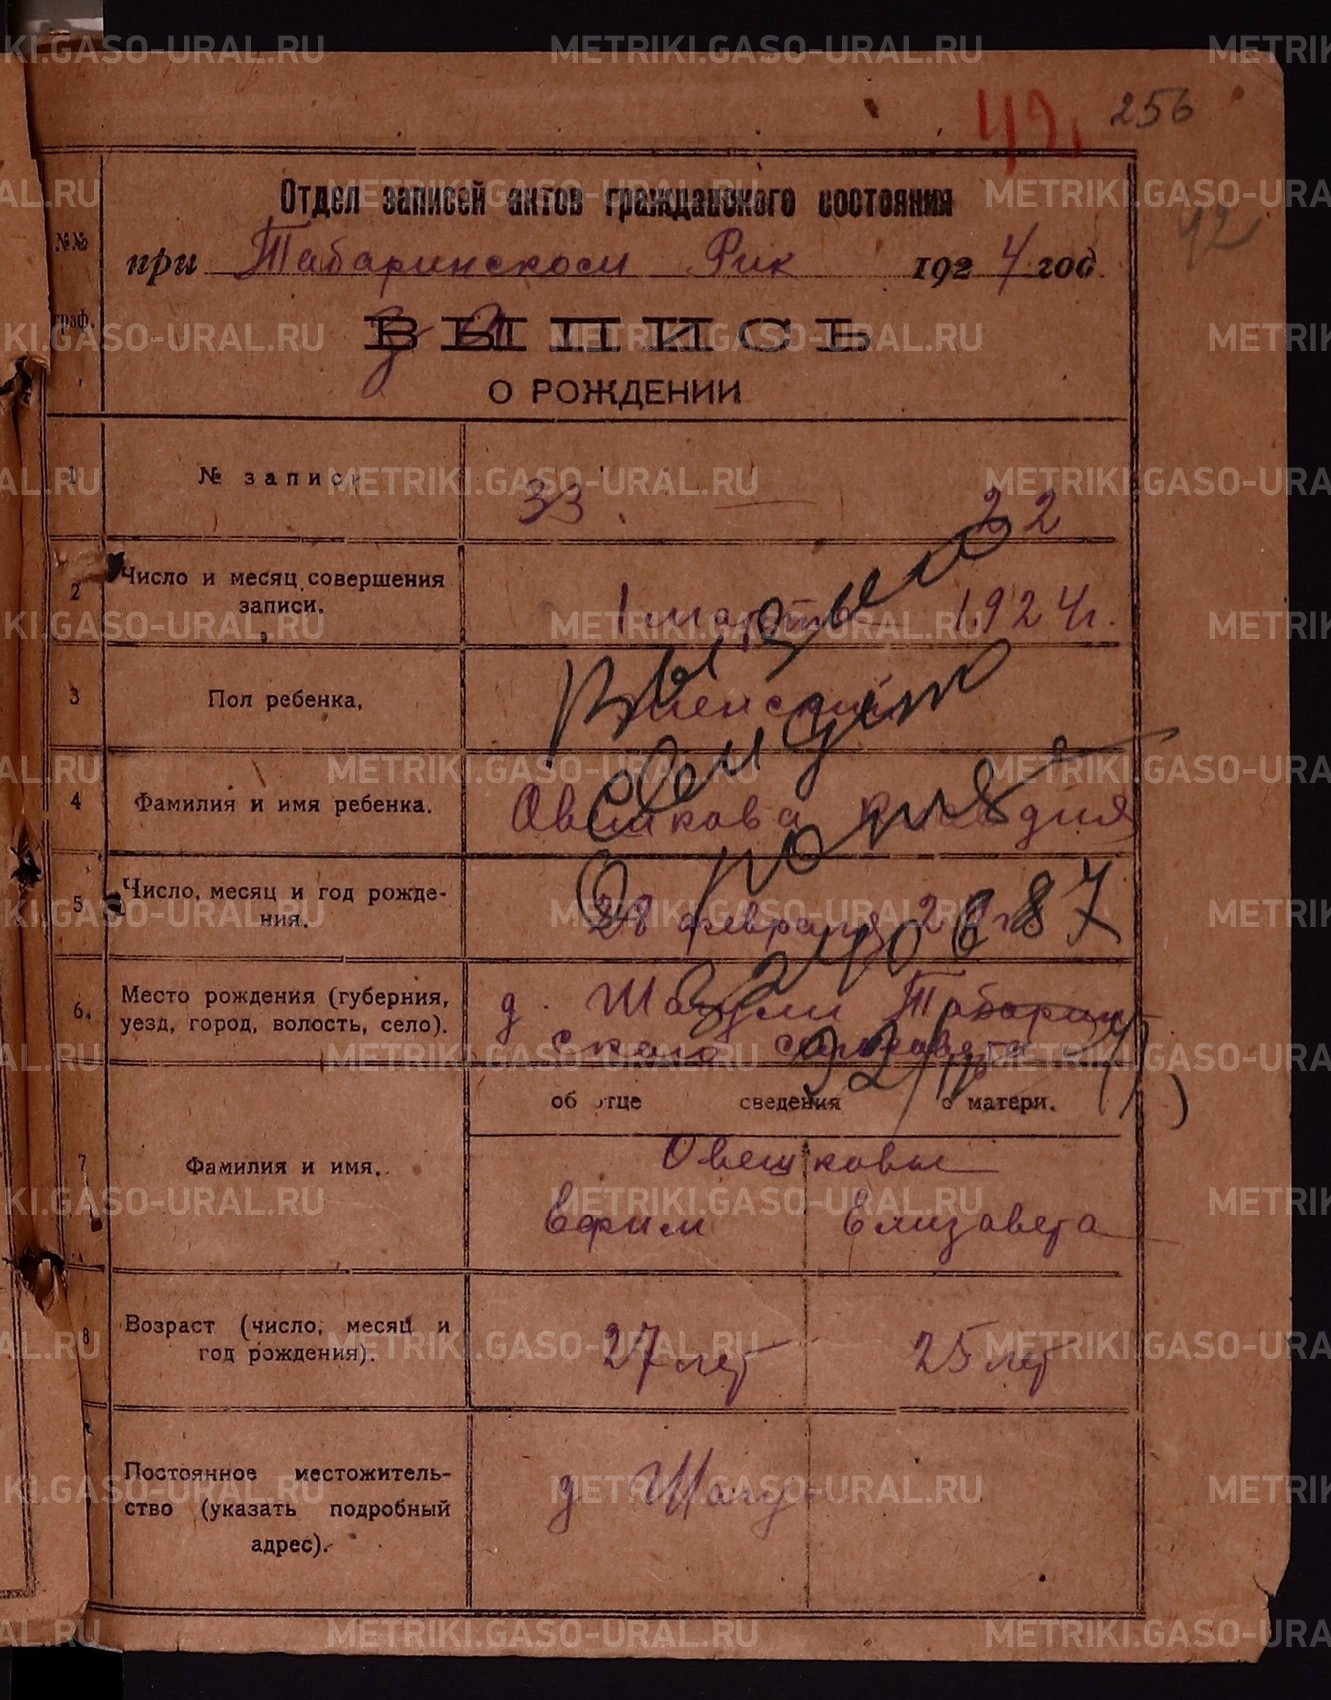 42 256
42
№№ граф.
Отдел записей актов гражданского состояния
при Табаринском Рик 1924 год
ВЫПИСЬ
О РОЖДЕНИИ
1 № записи 33 — 22
2 Число и месяц совершения записи. 1 марта 1924 г.
3 Пол ребенка. женский
4 Фамилия и имя ребенка. Овешкова
5 Число, месяц и год рождения. 28 февраля
6. Место рождения (губерния, уезд, город, волость, село). д. Табарин-
ского сельсовета
Выдано
свидет
о рожд
92
об отце сведения о матери.
7 Фамилия и имя. Овешковы
Ефим Елизавета
8 Возраст (число, месяц и год рождения). 27 лет 25 лет
Постоянное местожительство (указать подробный адрес). д
METRIKI.GASO-URAL.RU